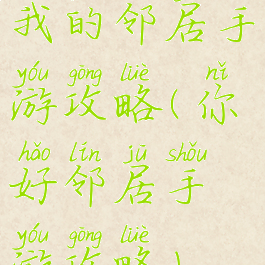 我的邻居手
yóu gōng lüè nǐ
游攻略(你
hǎo lín jū shǒu
好邻居手
yóu gōng lüè
游攻略)